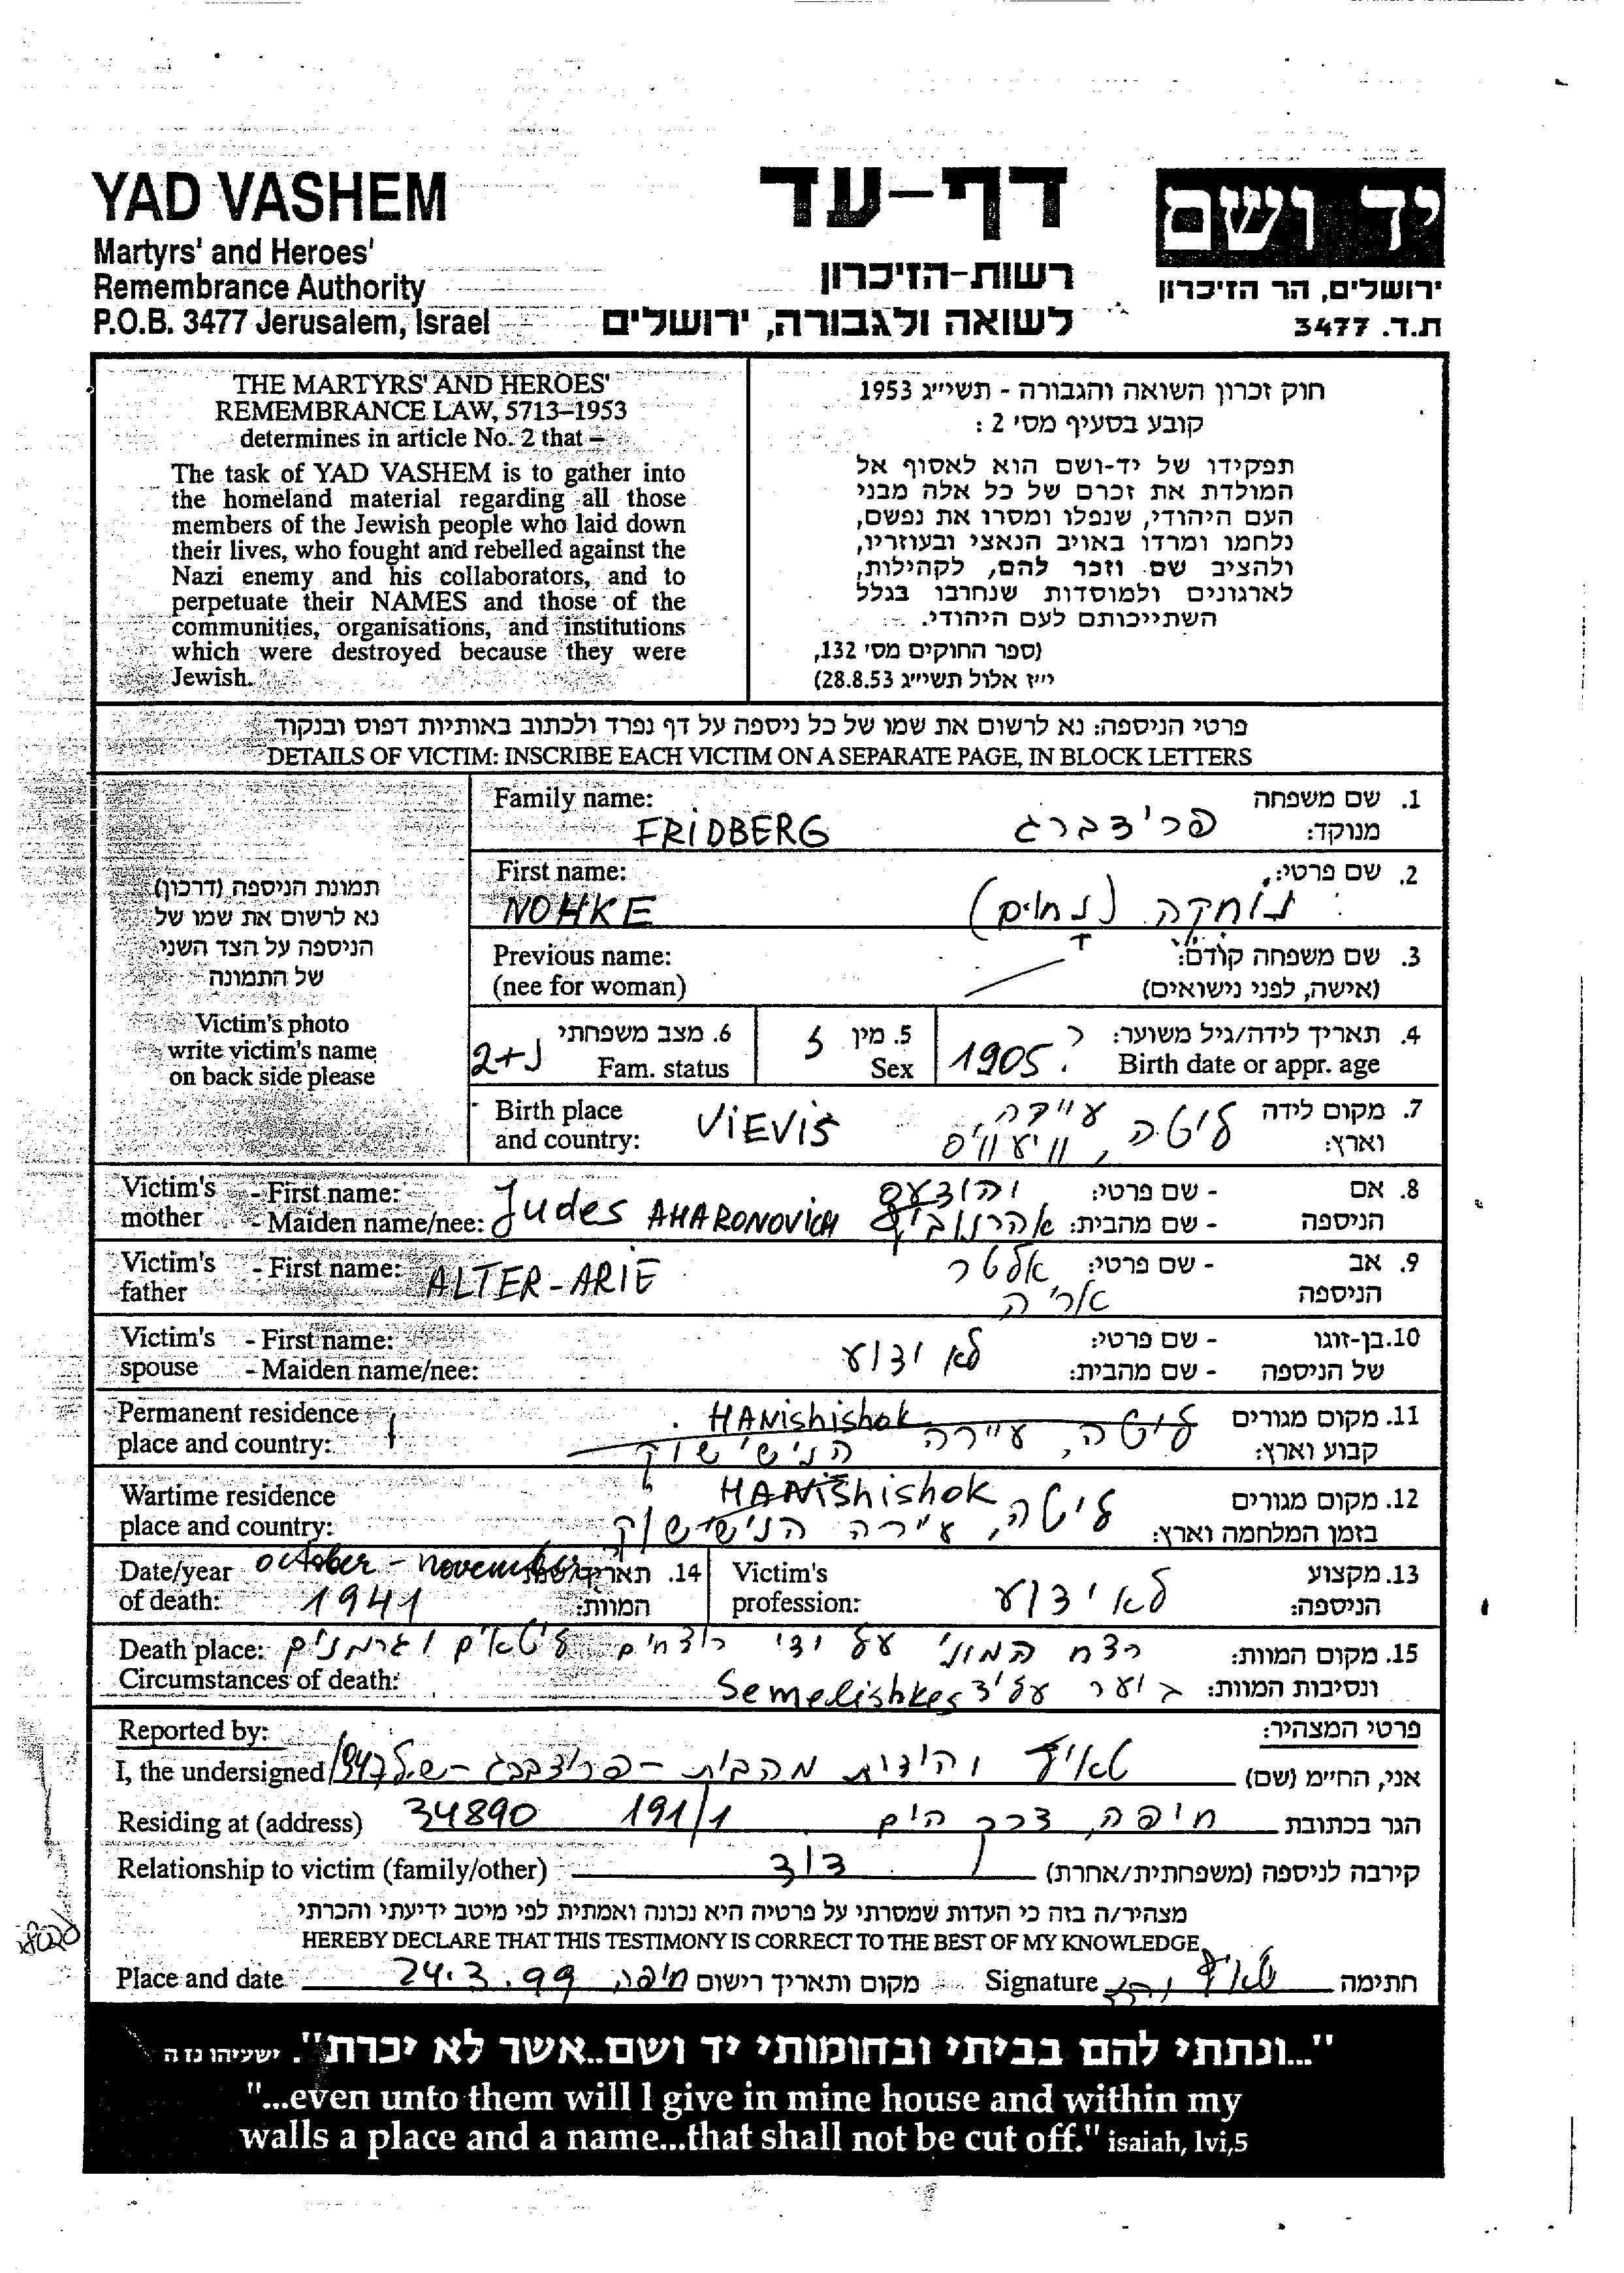 YAD VASHEM
Martyrs' and Heroes'
Remembrance Authority
P.O.B. 3477 Jerusalem, Israel
דף-עד
רשות-הזיכרון
לשואה ולגבורה, ירושלים
יד ושם
ירושלים, הר הזיכרון
ת.ד. 3477
THE MARTYRS' AND HEROES'
REMEMBRANCE LAW, 5713–1953
determines in article No. 2 that –
The task of YAD VASHEM is to gather into
the homeland material regarding all those
members of the Jewish people who laid down
their lives, who fought and rebelled against the
Nazi enemy and his collaborators, and to
perpetuate their NAMES and those of the
communities, organisations, and institutions
which were destroyed because they were
Jewish.
חוק זכרון השואה והגבורה - תשי״ג 1953
קובע בסעיף מס׳ 2 :
תפקידו של יד-ושם הוא לאסוף אל
המולדת את זכרם של כל אלה מבני
העם היהודי, שנפלו ומסרו את נפשם,
נלחמו ומרדו באויב הנאצי ובעוזריו,
ולהציב שם וזכר להם, לקהילות,
לארגונים ולמוסדות שנחרבו בגלל
השתייכותם לעם היהודי.
(ספר החוקים מס׳ 132,
י״ז אלול תשי״ג 28.8.53)
פרטי הניספה: נא לרשום את שמו של כל ניספה על דף נפרד ולכתוב באותיות דפוס ובנקוד
DETAILS OF VICTIM: INSCRIBE EACH VICTIM ON A SEPARATE PAGE, IN BLOCK LETTERS
תמונת הניספה (דרכון)
נא לרשום את שמו של
הניספה על הצד השני
של התמונה
Victim's photo
write victim's name
on back side please
Family name: 1. שם משפחה
FRIDBERG פרידברג מנוקד:
First name: 2. שם פרטי:
NOHKE נוחקה (נחום)
Previous name: 3. שם משפחה קודם:
(nee for woman) (אישה, לפני נישואים)
4. תאריך לידה/גיל משוער: ?
Birth date or appr. age 1905
5. מין ז
Sex
6. מצב משפחתי
Fam. status 2+נ
Birth place 7. מקום לידה
and country: VIEVIS וארץ: ליטה, עיירה וויעוויס
Victim's - First name: - שם פרטי: 8. אם
mother - Maiden name/nee: Judes AHARONOVICH - שם מהבית: אהרונוביץ הניספה
Victim's - First name: ALTER-ARIE - שם פרטי: אלטר 9. אב
father אריה הניספה
Victim's - First name: - שם פרטי: 10. בן-זוגו
spouse - Maiden name/nee: לא ידוע - שם מהבית: של הניספה
Permanent residence HANishishok 11. מקום מגורים
place and country: ליטה, עיירה הנישישוק קבוע וארץ:
Wartime residence HANishishok 12. מקום מגורים
place and country: ליטה, עיירה הנישישוק בזמן המלחמה וארץ:
Date/year october - november 14. תאריך
of death: 1941 המוות:
Victim's 13. מקצוע
profession: לא ידוע הניספה:
Death place: רצח המוני על ידי רוצחים ליטאים וגרמנים 15. מקום המוות:
Circumstances of death: ביער על יד Semelishkes ונסיבות המוות:
Reported by: פרטי המצהיר:
I, the undersigned טאיץ יהודית מהבית - פרידברג - אני, החיימ (שם)
Residing at (address) 34890 191/1 חיפה, דרך הים הגר בכתובת
Relationship to victim (family/other) דוד קירבה לניספה (משפחתית/אחרת)
מצהיר/ה בזה כי העדות שמסרתי על פרטיה היא נכונה ואמתית לפי מיטב ידיעתי והכרתי
HEREBY DECLARE THAT THIS TESTIMONY IS CORRECT TO THE BEST OF MY KNOWLEDGE
Place and date 24.3.99 חיפה מקום ותאריך רישום Signature חתימה
"...ונתתי להם בביתי ובחומותי יד ושם..אשר לא יכרת". ישעיהו נז ה
"...even unto them will I give in mine house and within my
walls a place and a name...that shall not be cut off." isaiah, lvi,5